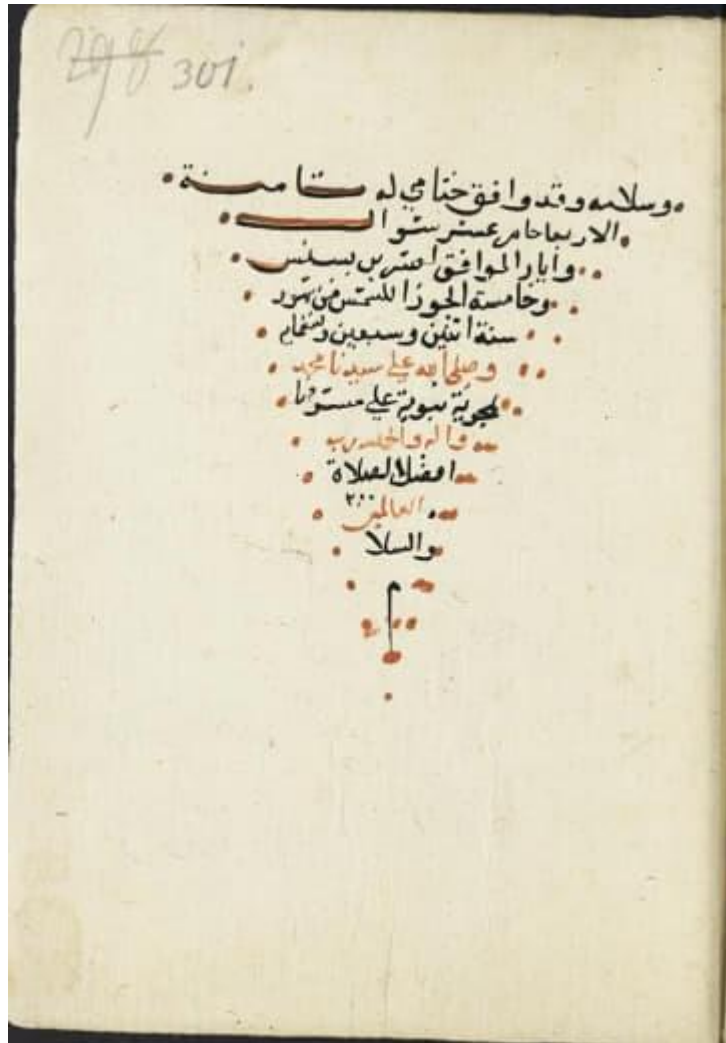 298 301.
وسلامه وقد وافق ختامي له ثامنة
الاربعا خامس عشر شوال
وأيار الموافق لعشرين بشنس
وخامسة الجوزا للشمس من شهور
سنة اثنين وسبعين وتسعمايه
وصلى الله علي سيدنا محمد
نبوية علي
واله والحمد رب
افضل الصلاة
العالمين
والسلا
م